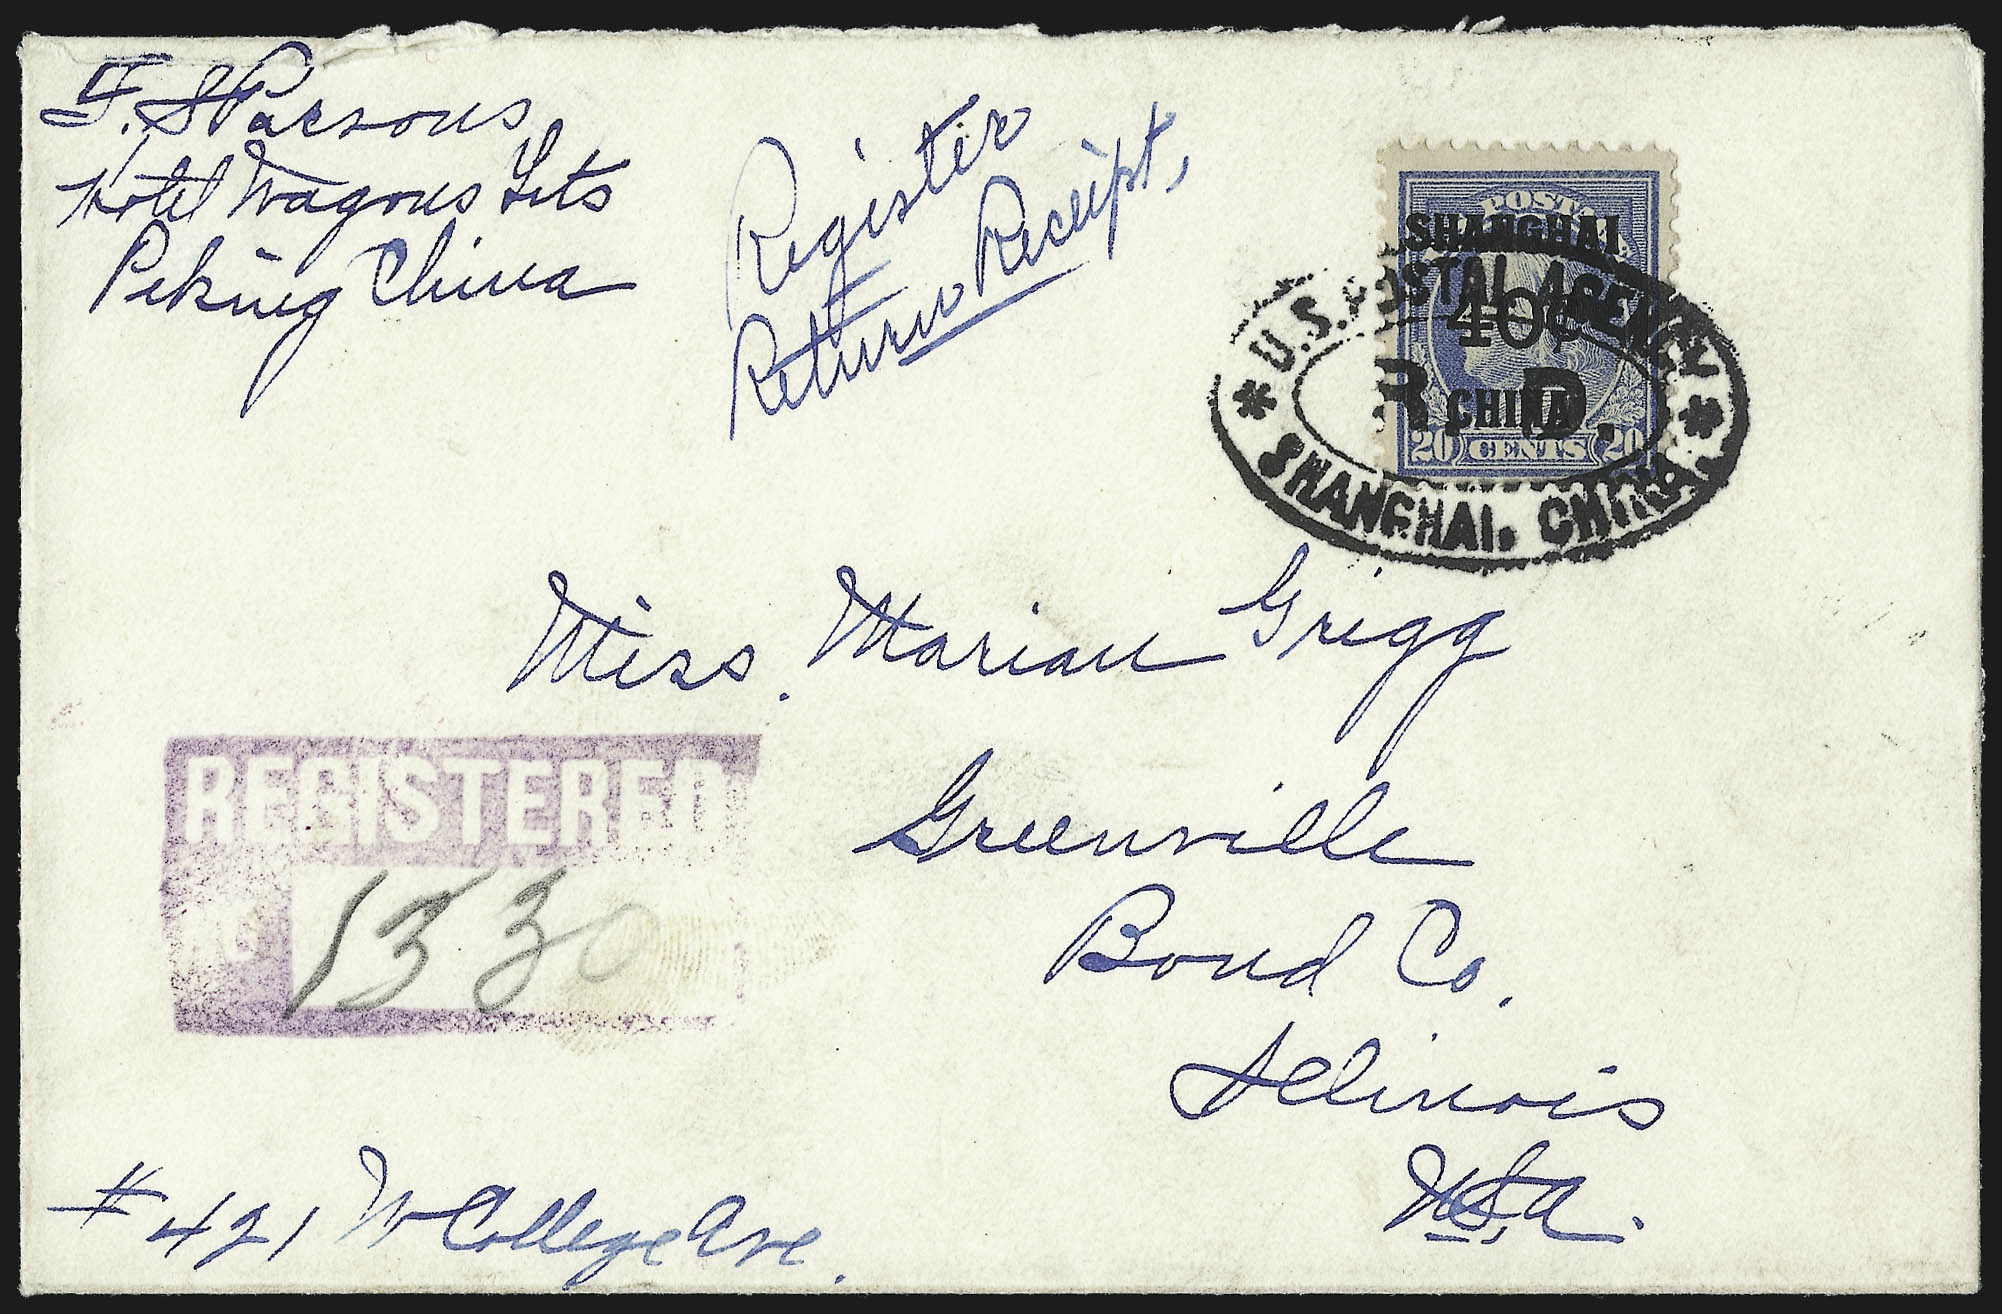 F. S Parsons
Hotel Wagons Lits
Peking China
Register
Return Receipt,
POSTA
SHANGHAI
40¢
CHINA
20 CENTS 20
* U.S. POSTAL AGENCY *
R. D.
SHANGHAI. CHINA
Miss. Marian Grigg
Greenville
Bond Co.
Illinois
U.S.A.
REGISTERED
1330
# 421 W College Ave.